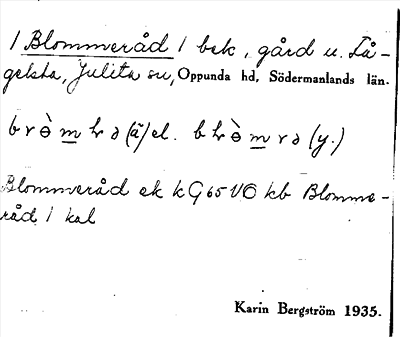 / Blommeråd / bek, gård u. Lå-
gelsta, Julita sn, Oppunda hd, Södermanlands län.
(ä) el. (y.)
Blommeråd ek k G65 VO kb Blomme-
råd / kal
Karin Bergström 1935.